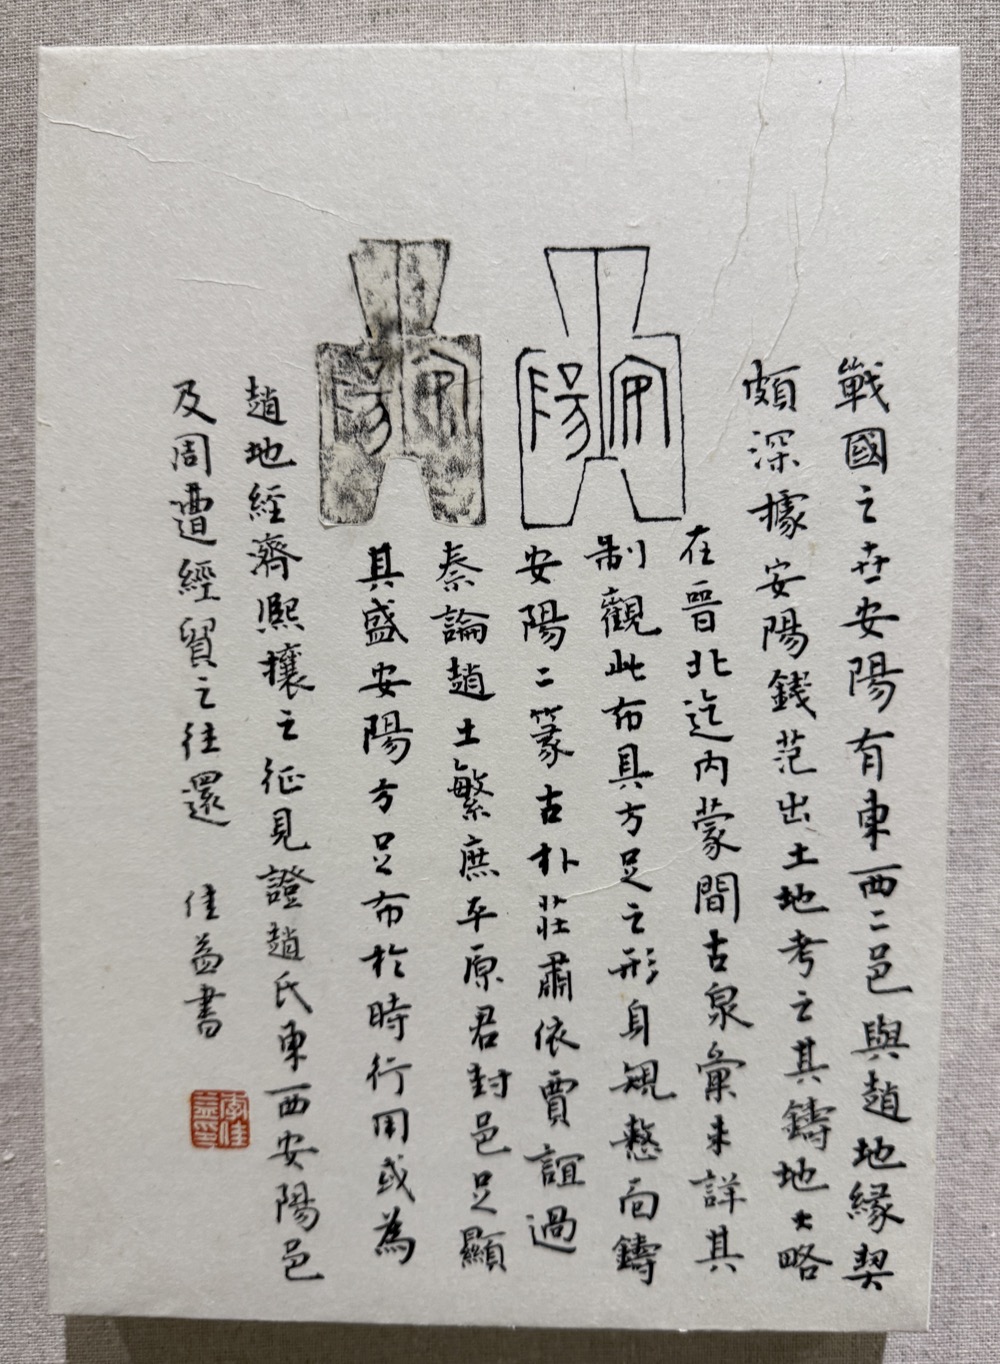 戰國之世安陽有東西二邑與趙地緣契
頗深據安陽錢范出土地考之其鑄地大略
在晉北迄內蒙間古泉彙未詳其
制觀此布具方足之形身規整面鑄
安陽二篆古朴莊肅依賈誼過
秦論趙土繁庶平原君封邑足顯
其盛安陽方足布於時行用或為
趙地經濟熙攘之征見證趙氏東西安陽邑
及周遭經貿之往還
佳益書
李佳益印
安陽
安陽